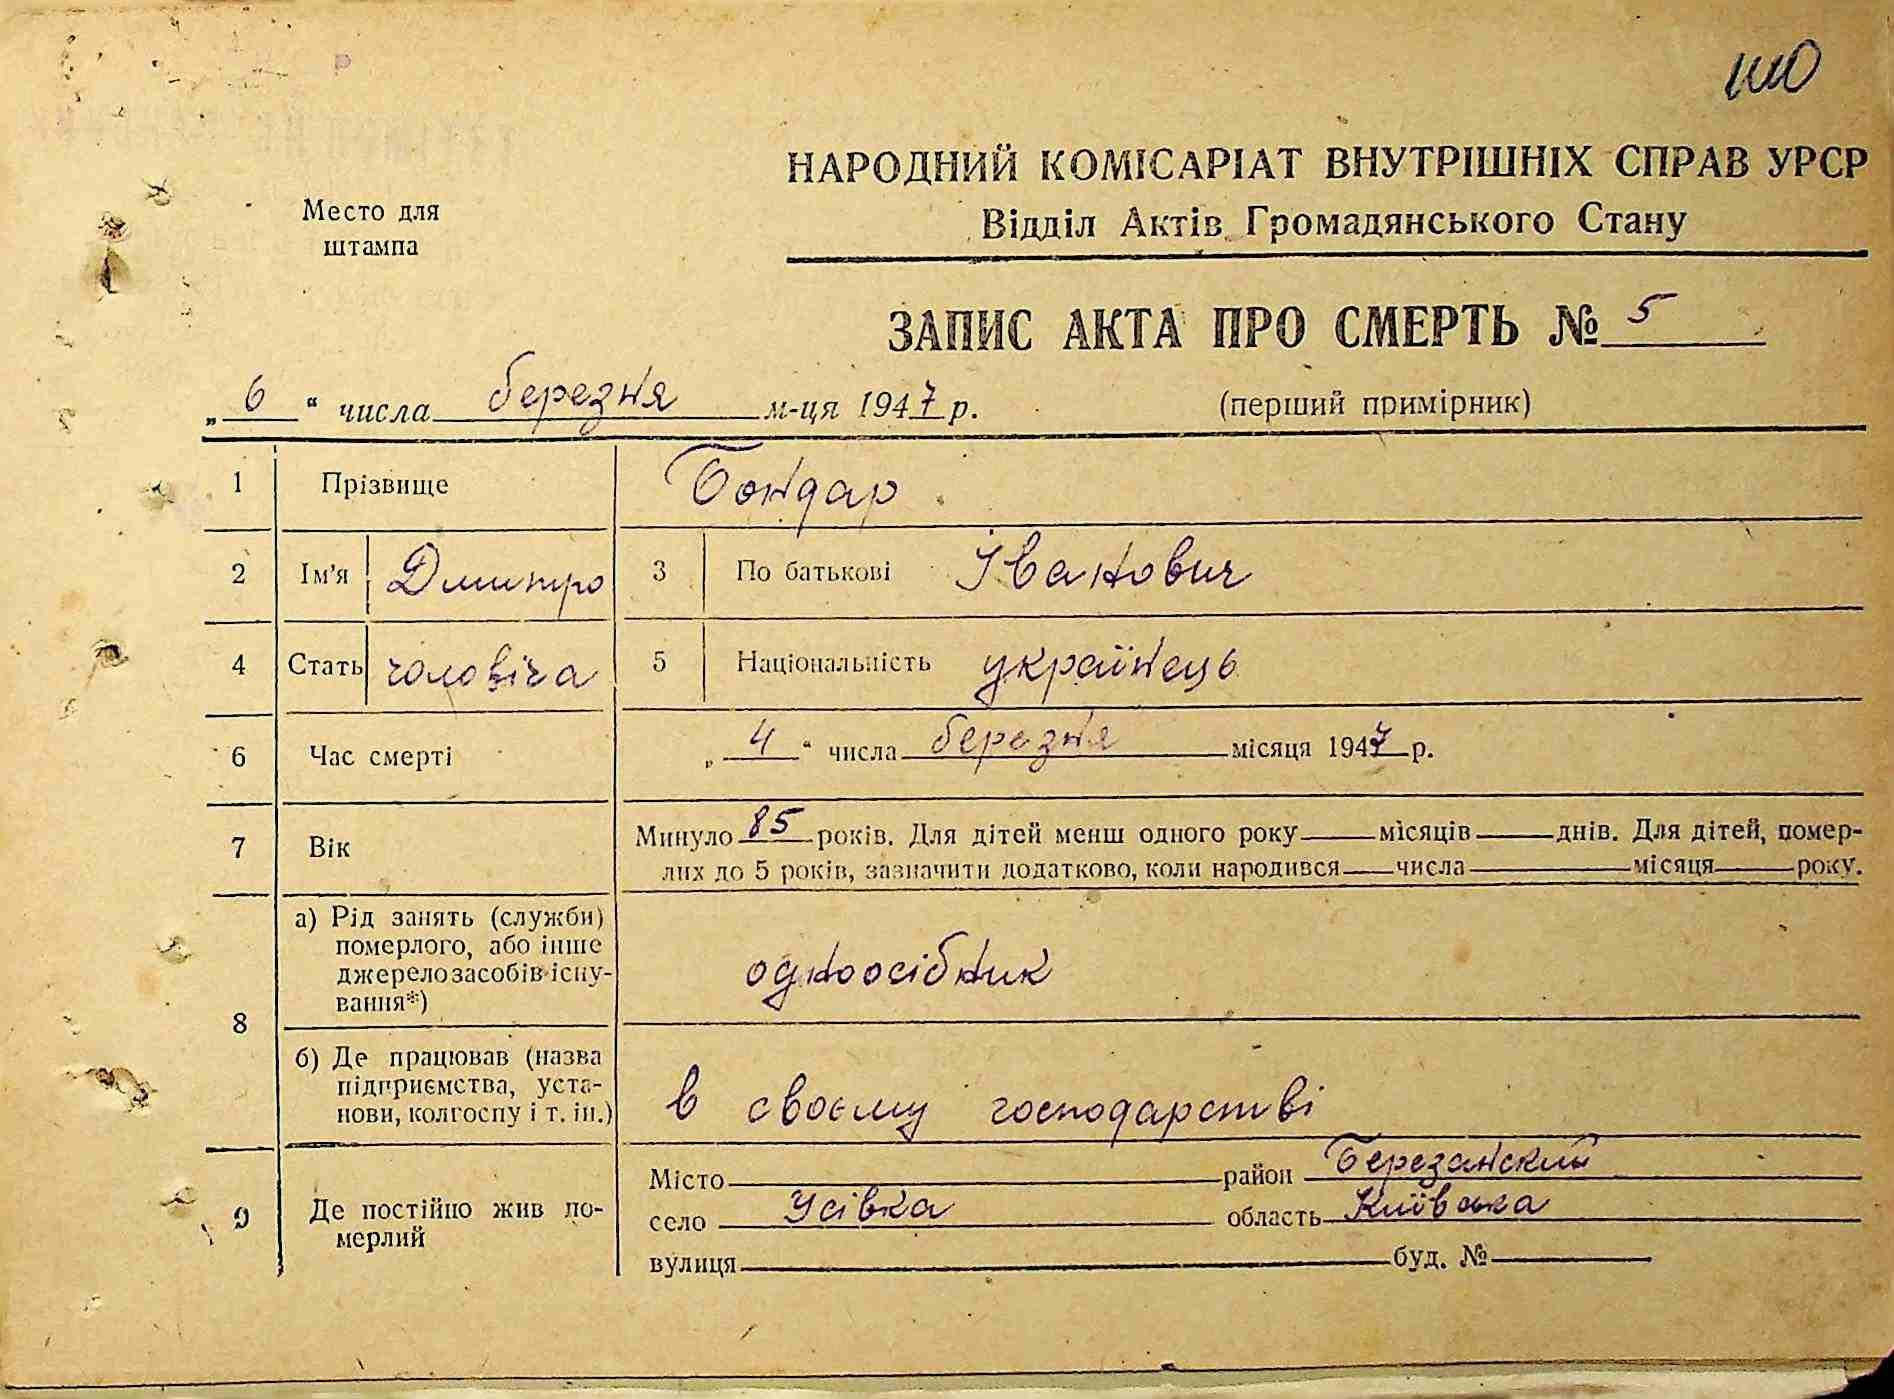 НАРОДНИЙ КОМІСАРІАТ ВНУТРІШНІХ СПРАВ УРСР
Відділ Актів Громадянського Стану
Место для
штампа
ЗАПИС АКТА ПРО СМЕРТЬ № 5
„6“ числа березня м-ця 1947 р. (перший примірник)
1 Прізвище Бондар
2 Ім'я Дмитро 3 По батькові Іванович
4 Стать чоловіча 5 Національність українець
6 Час смерті „4“ числа березня місяця 1947 р.
7 Вік Минуло 85 років. Для дітей менш одного року місяців днів. Для дітей, помер-
лих до 5 років, зазначити додатково, коли народився числа місяця року.
8 а) Рід занять (служби)
померлого, або інше
джерело засобів існу-
вання*) одноосібник
б) Де працював (назва
підприємства, уста-
нови, колгоспу і т. ін.) в своєму господарстві
9 Де постійно жив по-
мерлий
Місто район Березанський
село Усівка область Київська
вулиця буд. №